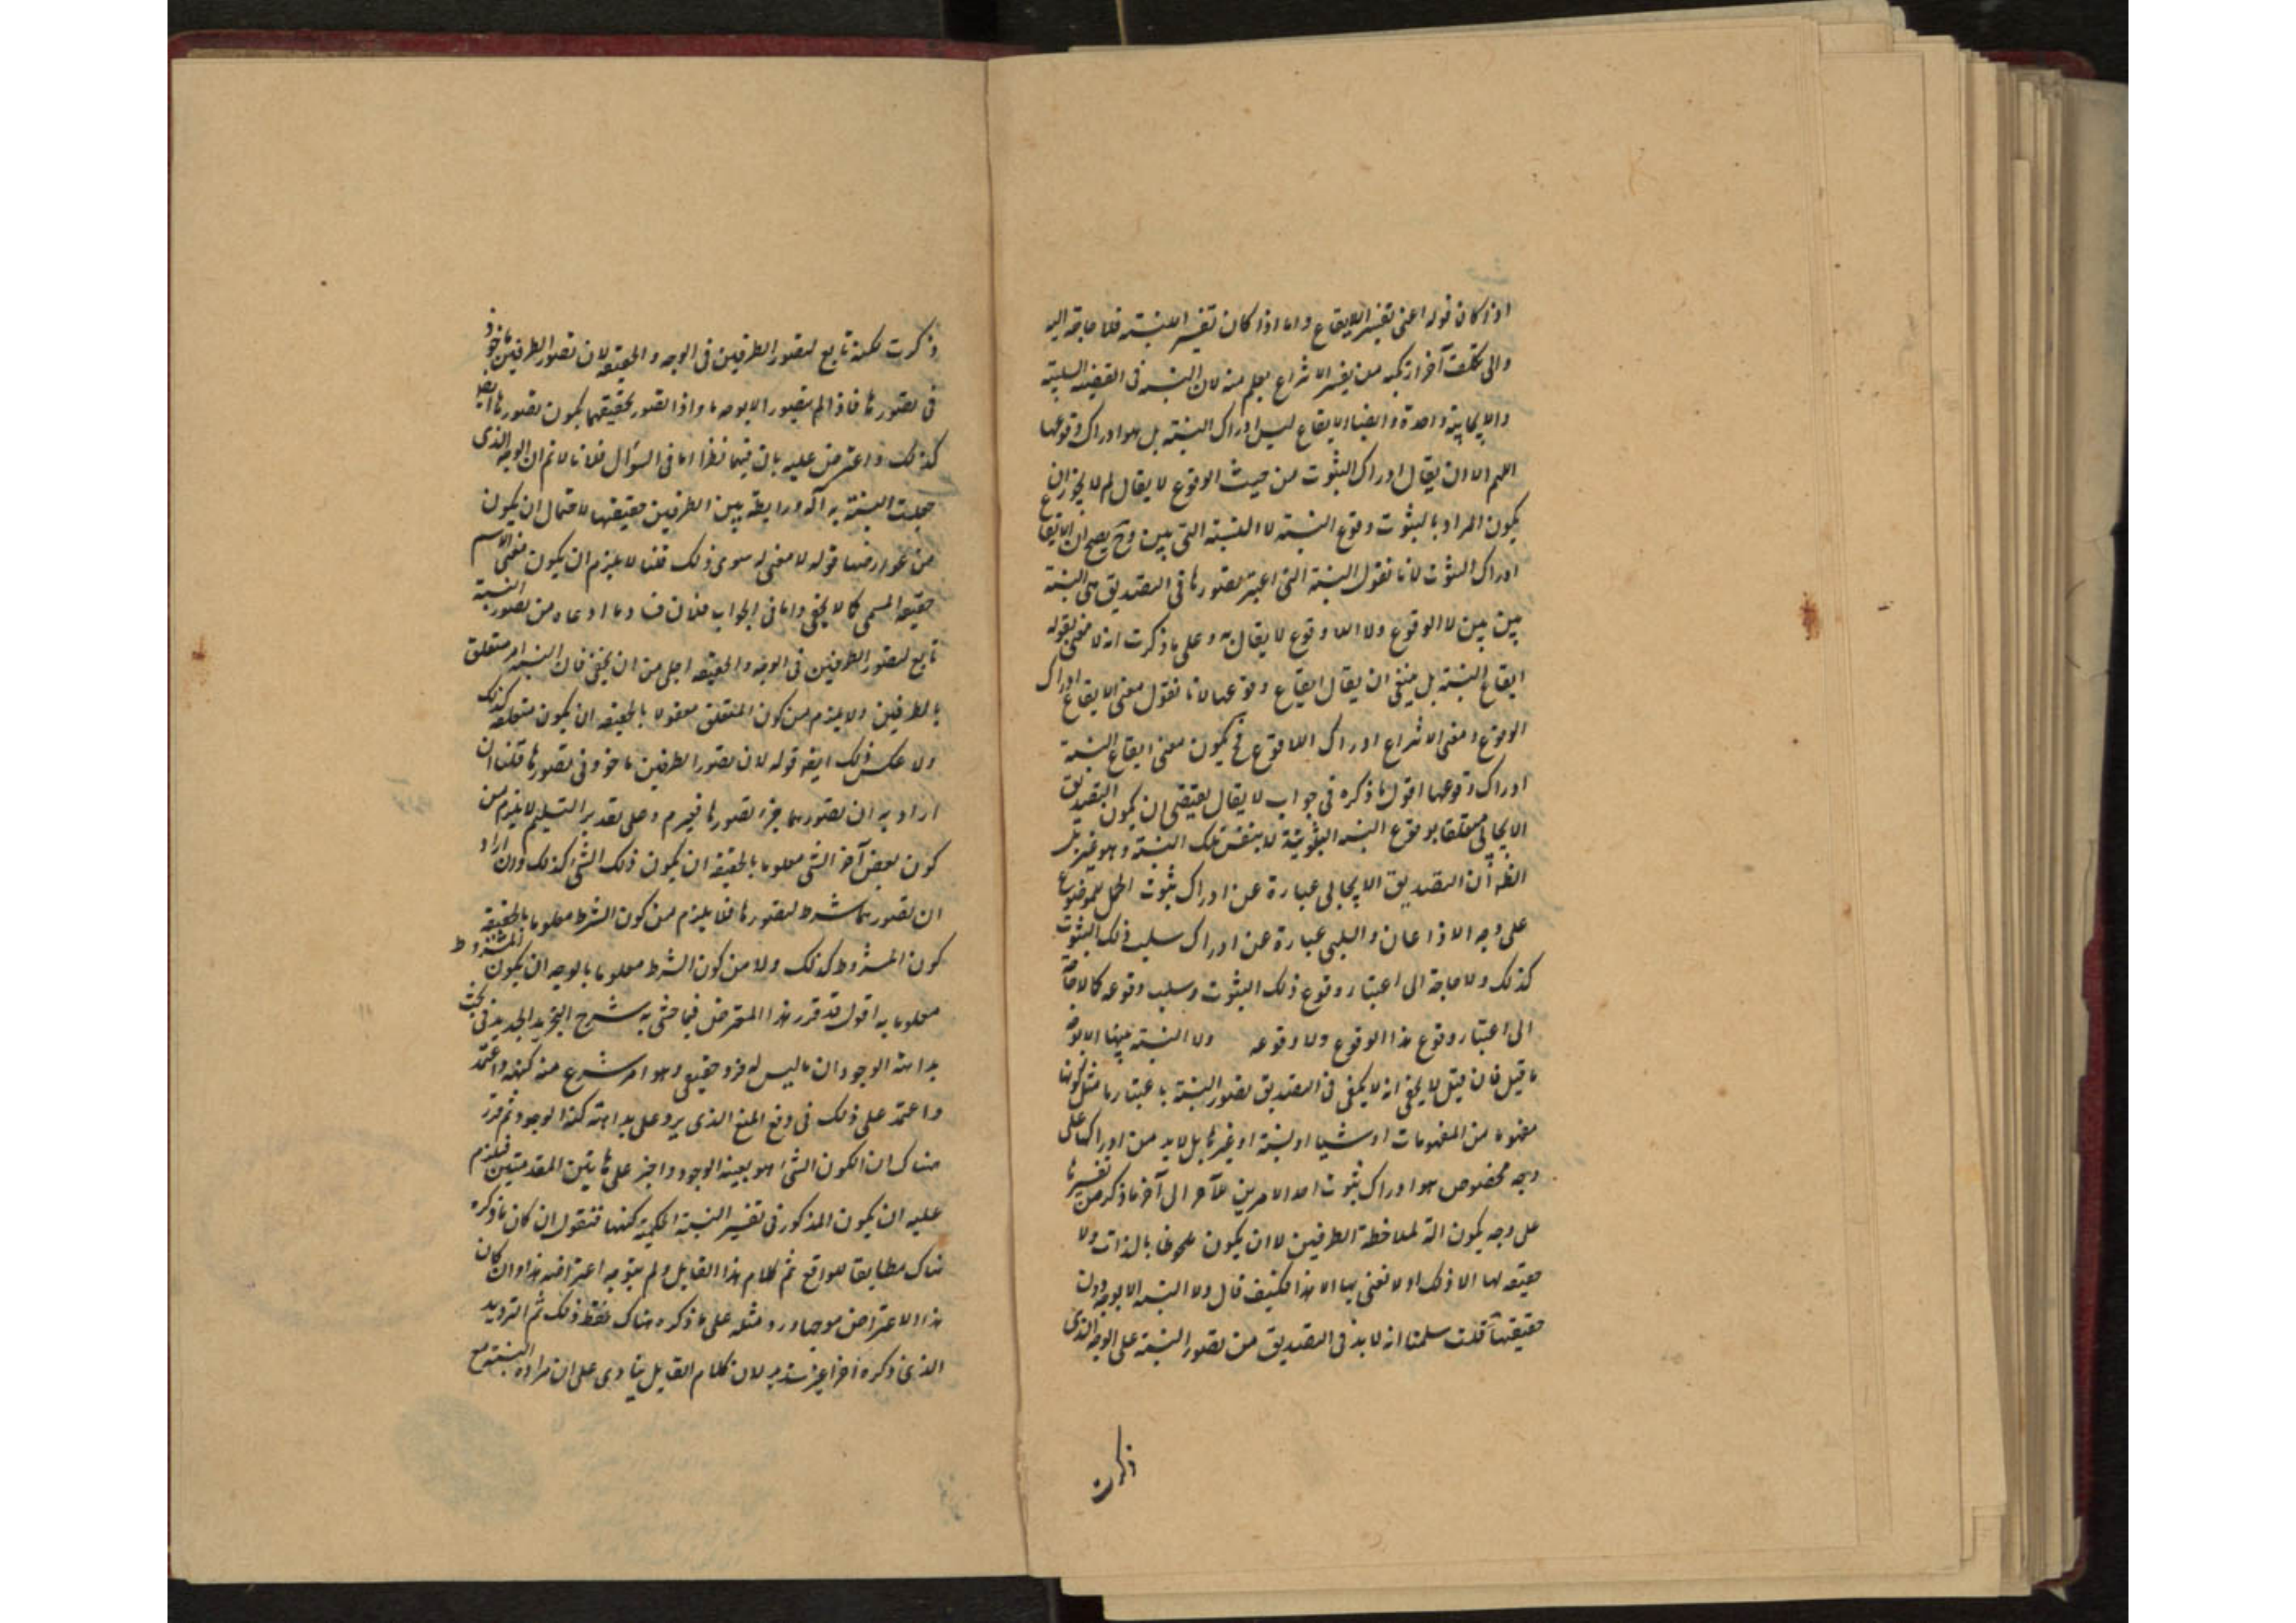 اذا كان قوله اعنى تفسير الايقاع واما اذا كان تفسير النسبة فلا حاجة اليه
والى تكلف آخر ارتكبه من تفسير الانتزاع يعلم منه لان النسبة فى القضية السلبية
والايجابية واحدة وايضا الايقاع ليس ادراك النسبة بل هو ادراك وقوعها
اللهم الا ان يقال ادراك الثبوت من حيث الوقوع لا يقال لم لا يجوز ان
يكون المراد بالثبوت وقوع النسبة لا النسبة التى بين وح يصح ان الايقاع
ادراك الثبوت لانا نقول النسبة التى اعتبر تصورها فى التصديق هى النسبة
بين بين لا الوقوع ولا اللا وقوع لا يقال وعلى ما ذكرت انه لا معنى لقوله
ايقاع النسبة بل ينبغى ان يقال ايقاع وقوعها لانا نقول معنى الايقاع ادراك
الوقوع ومعنى الانتزاع ادراك اللا وقوع فح يكون معنى ايقاع النسبة
ادراك وقوعها اقول ما ذكره فى جواب لا يقال يقتضى ان يكون التصديق
الايجابى متعلقا بوقوع النسبة الثبوتية لا بنفس تلك النسبة وهو غير
الظ ان التصديق الايجابى عبارة عن ادراك ثبوت المحمول للموضوع
على وجه الاذعان والسلبى عبارة عن ادراك سلب ذلك الثبوت
كذلك ولا حاجة الى اعتبار وقوع ذلك الثبوت وسلب وقوعه كما لا حاجة
الى اعتبار وقوع هذا الوقوع ولا وقوعه ولا النسبة بينها الا بوجه
ما قيل فان قيل لا يخفى انه لا يكفى فى التصديق تصور النسبة باعتبار ما مثل كونها
مفهوما من المفهومات او شيئا او نسبة او غيرها بل لا بد من ادراك على
وجه مخصوص هو ادراك ثبوت احد الامرين للآخر الى آخر ما ذكر من تفسيرها
على وجه يكون آلة لملاحظة الطرفين لا ان يكون ملحوظا بالذات ولا
حقيقة لها الا ذلك او لا نعنى بها الا هذا فكيف قال ولا النسبة الا بوجه دون
حقيقتها قلت سلمنا انه لا بد فى التصديق من تصور النسبة على الوجه الذى
ذكرت
ذكرت لكنه تابع لتصور الطرفين فى الوجه والحقيقة لان تصور الطرفين ماخوذ
فى تصورها فاذا لم يتصور الا بوجه ما واذا تصور بحقيقتهما يكون تصورها ايضا
كذلك واعترض عليه بان فيهما نظرا اما فى السؤال فلانا لا نم ان الوجه الذى
جعلت النسبة به آلة ورابطة بين الطرفين حقيقتها لاحتمال ان يكون
من عوارضها قوله لا معنى له سوى ذلك قلنا لا يلزم ان يكون معنى الاسم
حقيقة المسمى كما لا يخفى واما فى الجواب فلان فساد ما ادعاه من تصور النسبة
تابع لتصور الطرفين فى الوجه والحقيقة اجلى من ان يخفى فان النسبة امر متعلق
بالطرفين ولا يلزم من كون المتعلق معقولا بالحقيقة ان يكون متعلقه كذلك
ولا عكس ذلك ايضا قوله لان تصور الطرفين ماخوذ فى تصورها قلنا ان
اراد به ان تصورهما جزء تصورها فيحرم وعلى تقدير التسليم لا يلزم من
كون بعض آخر الشئ معلوما بالحقيقة ان يكون ذلك الشئ كذلك وان اراد
ان تصورهما شرط لتصورها فلا يلزم من كون الشرط معلوما بالحقيقة
كون المشروط كذلك ولا من كون الشرط معلوما بالوجه ان يكون المشروط
معلوما به اقول قد قرر هذا المعترض فيما حشى به شرح التجريد الجديد فى بحث
بداهة الوجود ان ما ليس له فرد حقيقى وهو امر منتزع منه كنهه واعتمد
واعتمد على ذلك فى دفع المنع الذى يرد على بداهة كنه الوجود ثم قرر
هناك ان الكون الشئ هو بعينه الوجود واجز على هاتين المقدمتين فيلزم
عليه ان يكون المذكور فى تفسير النسبة الحكمية كنهها فنقول ان كان ما ذكره
هناك مطابقا للواقع تم كلام هذا القايل ولم يتوجه اعتراضه هذا وان كان
هذا الاعتراض موجها ورد مثله على ما ذكره هناك فقط ذلك ثم الترديد
الذى ذكره آخرا غير سديد لان كلام القايل ينادى على ان مراده النسبة مع